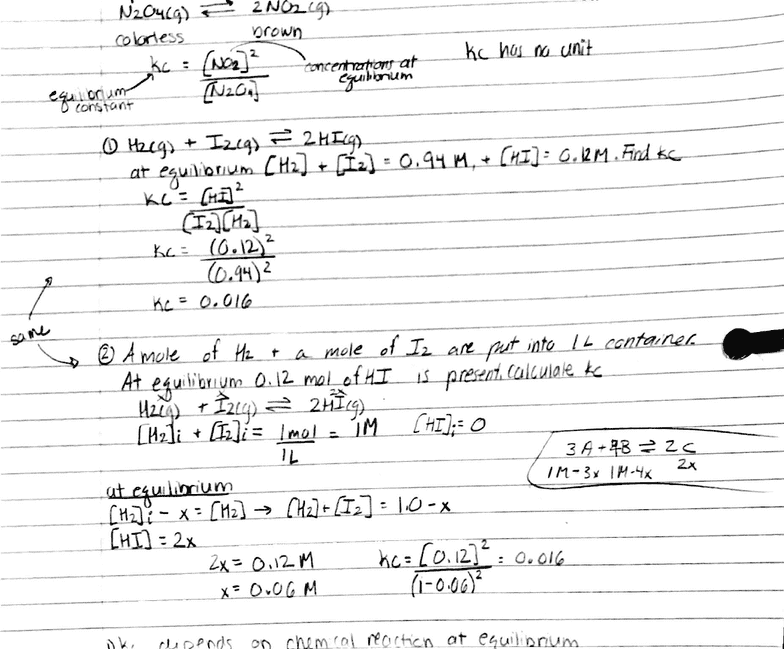 N2O4(g) ⇌ 2NO2(g)
colorless brown
Kc = [NO2]² / [N2O4]
concentrations at equilibrium
equilibrium constant
Kc has no unit
① H2(g) + I2(g) ⇌ 2HI(g)
at equilibrium [H2] + [I2] = 0.94 M, + [HI] = 0.12M. Find Kc
Kc = [HI]² / [I2][H2]
Kc = (0.12)² / (0.94)²
Kc = 0.016
same
② A mole of H2 + a mole of I2 are put into 1L container.
At equilibrium 0.12 mol of HI is present. Calculate Kc
H2(g) + I2(g) ⇌ 2HI(g)
[H2]i + [I2]i = 1mol / 1L = 1M [HI]i = 0
3A + 4B ⇌ 2C
1M-3x 1M-4x 2x
at equilibrium
[H2]i - x = [H2] → [H2] + [I2] = 1.0 - x
[HI] = 2x
2x = 0.12 M Kc = [0.12]² / (1-0.06)² = 0.016
x = 0.06 M
depends on chemical reaction at equilibrium